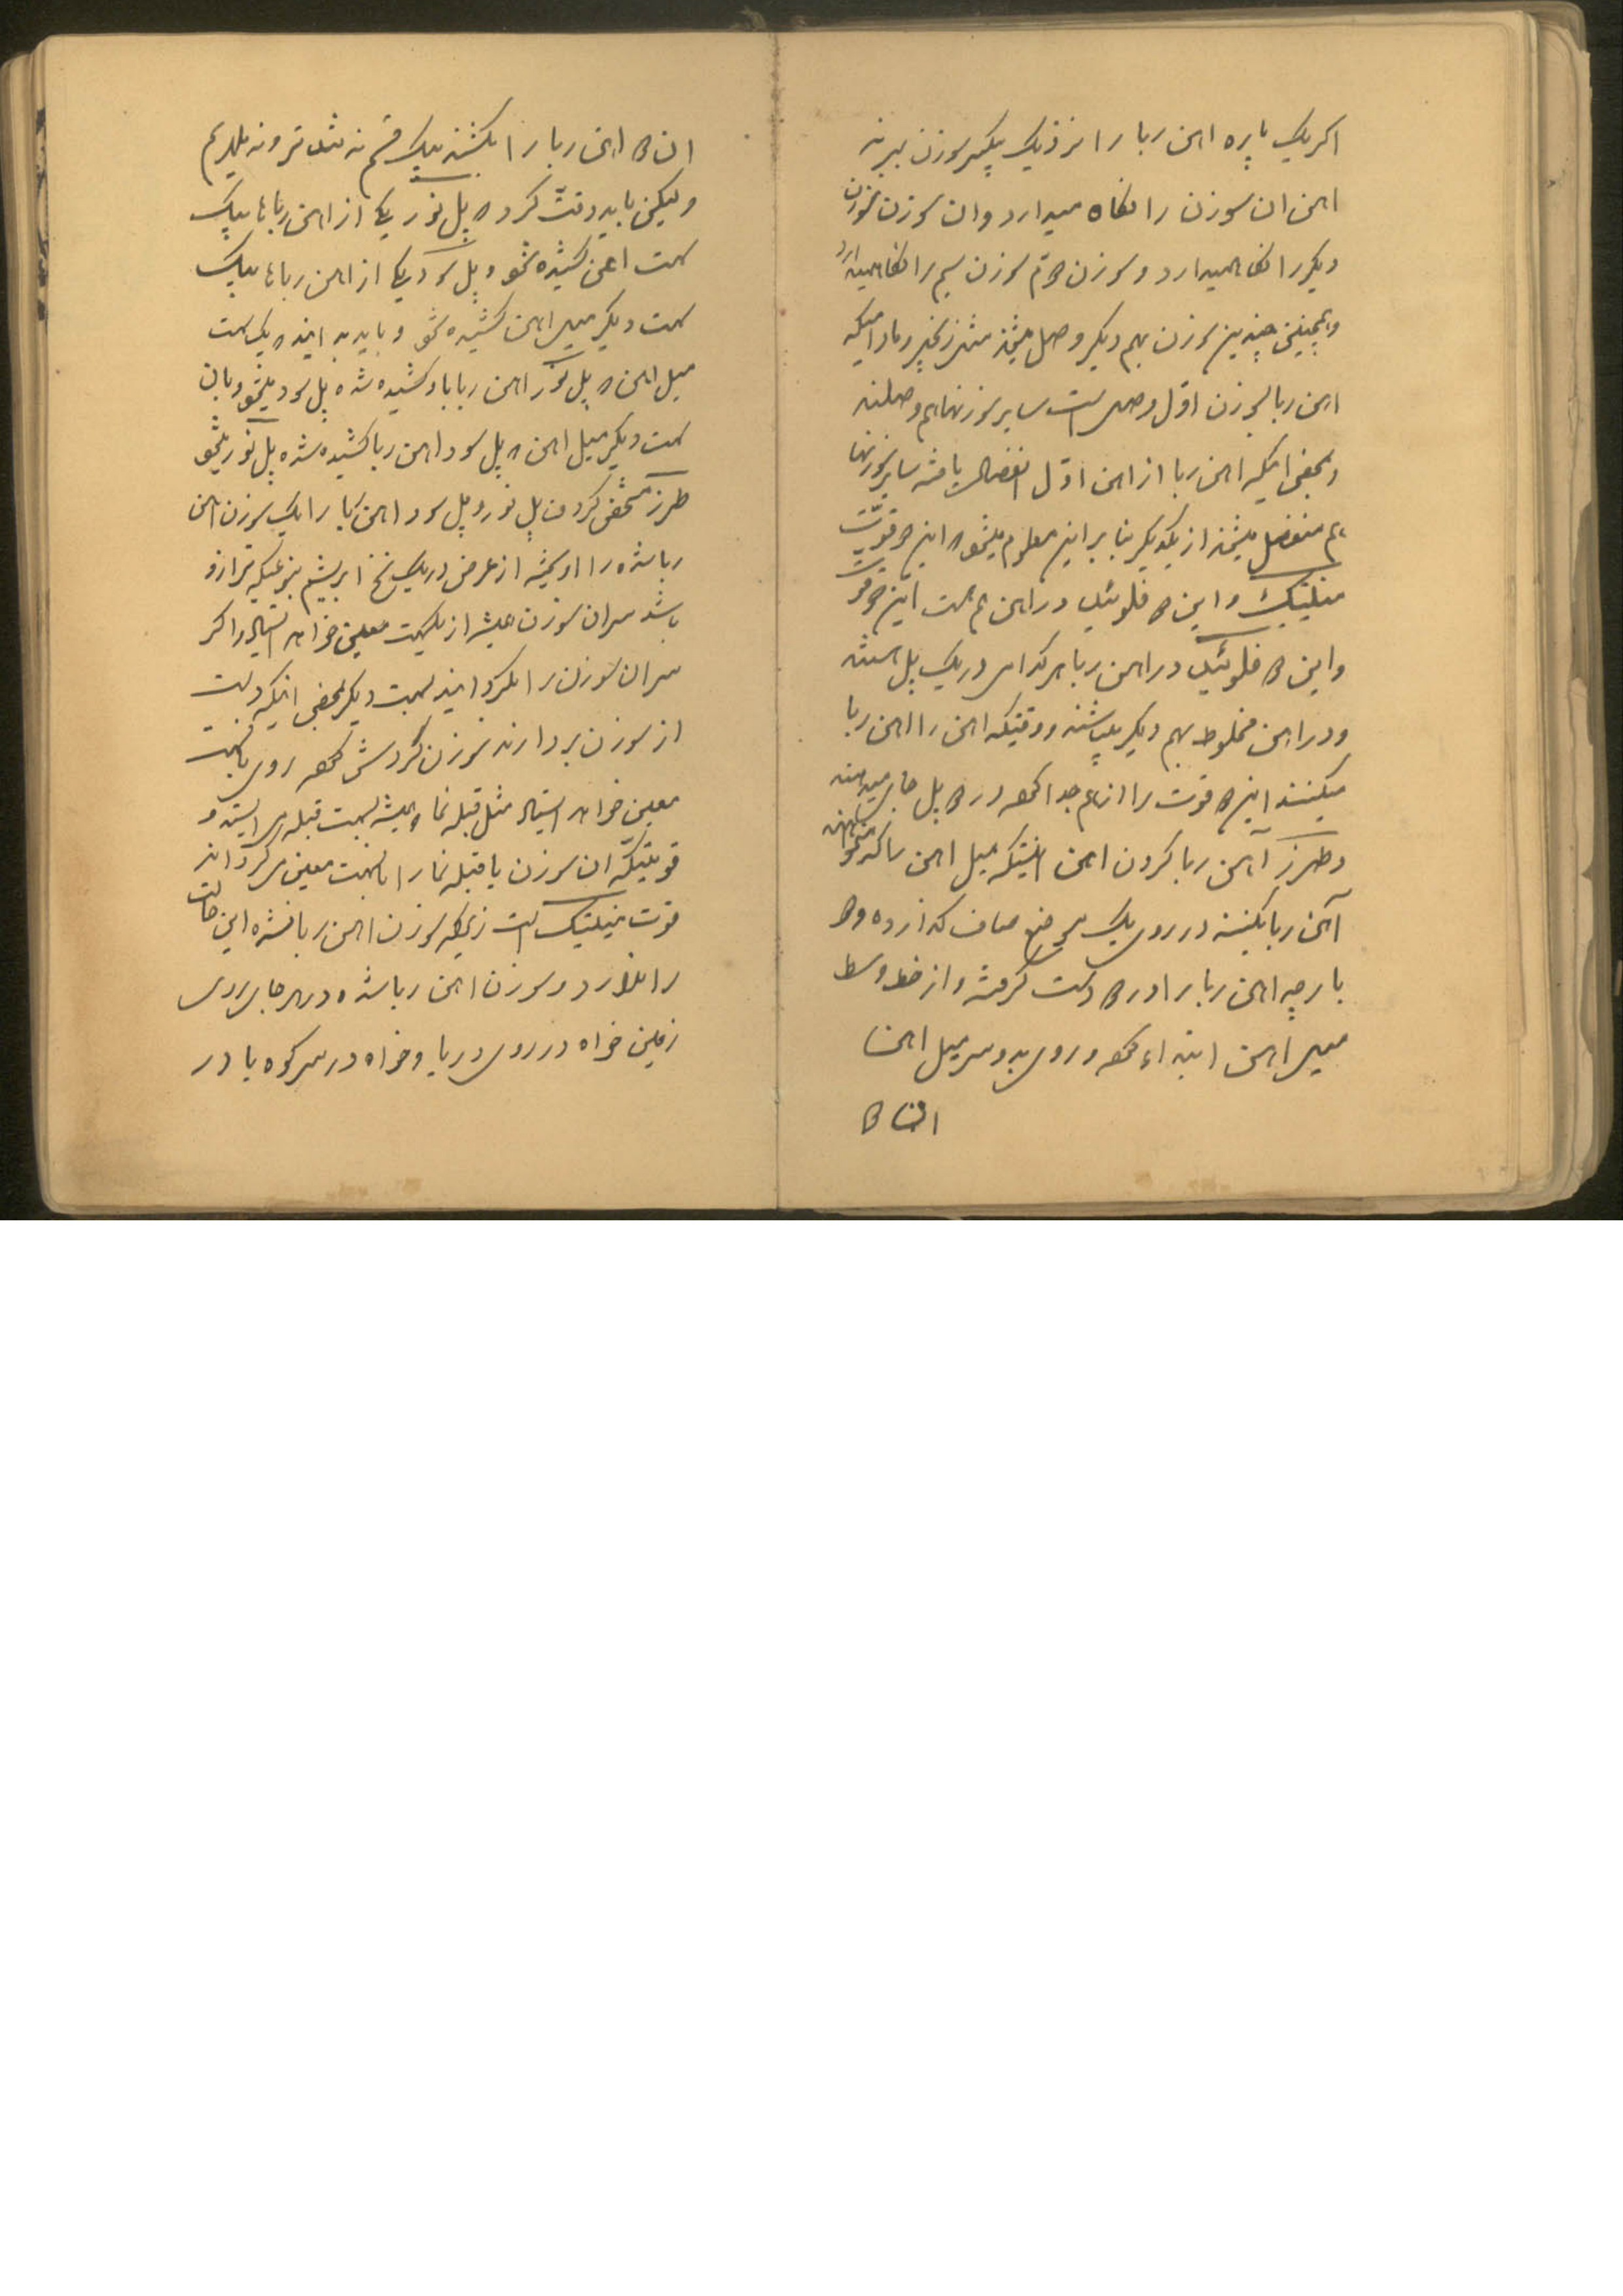 اکر یک پاره اهن ربا را نزدیک یکسر سوزن ببرند
اهن ان سوزن را نکاه میدارد وان سوزن سوزن
دیکر را نکاهمیدارد و سوزن دوم سوزن سیم را نکاهمیدارد
و همچنین چندین سوزن بهم دیکر وصل میشوند مثل زنجیر و مادامیکه
اهن ربا بسوزن اوّل وصل است سایر سوزنها هم وصلند
و بمحض اینکه اهن ربا از اهن اوّل انفصال یافته سایر سوزنها
هم منفصل میشوند از یکدیکر بنا براین معلوم میشود که این دو قوّت
منیتیک و این دو فلوئید در اهن هم هست این دو قوت
و این دو فلوئید در اهن ربا هر کدام در یک پل هستند
و در اهن مخلوط بهم دیکر میباشند و وقتیکه اهن را اهن ربا
میکنند این دو قوت را از هم جدا کرده در دو پل جای میدهند
و طرز آهن ربا کردن اهن اینستکه میل اهن را که میخواهند
آهن ربا بکنند در روی یک موضع صاف کذارده و دو
پارچه اهن ربا را در دو دست کرفته و از خط وسط
میل اهن ابتداء کرده و روی بدو سر میل اهن
ان دو
ان دو اهن ربا را بکشند بیک قسم نه تندتر و نه ملایم
ولیکن باید دقّت کرد که پل نور یکی از اهن رباها بیک
سمت اهن کشیده شود و پل سود یکی از اهن رباها بیک
سمت دیکر میل اهن کشیده شود و باید بدانند که یک سمت
میل اهن که پل نور اهن ربا باو کشیده شده پل سود میشود و بان
سمت دیکر میل اهن که پل سود اهن ربا کشیده شده پل نور میشود
طرز مشخص کردن پل نور و پل سود اهن ربا را یک سوزن اهن
ربا شده را اویخته از عرض در یک نخ ابریشم بنوعیکه ترازو
باشد سر ان سوزن همیشه از یکسمت معین خواهد ایستاد و اکر
سر ان سوزن را بکردانند بسمت دیکر بمحض اینکه دست
از سوزن بردارند سوزن کردش کرده روی بانسمت
معین خواهد ایستاد مثل قبله نما که همیشه بسمت قبله می ایستد و
قوتیکه ان سوزن یا قبله نما را بسمت معین میکرداند
قوت منیتیک است زیراکه سوزن اهن ربا نشده این حالت
را ندارد و سوزن اهن ربا شده در هر جا بر روی
زمین خواه در روی دریا و خواه در سر کوه یا در